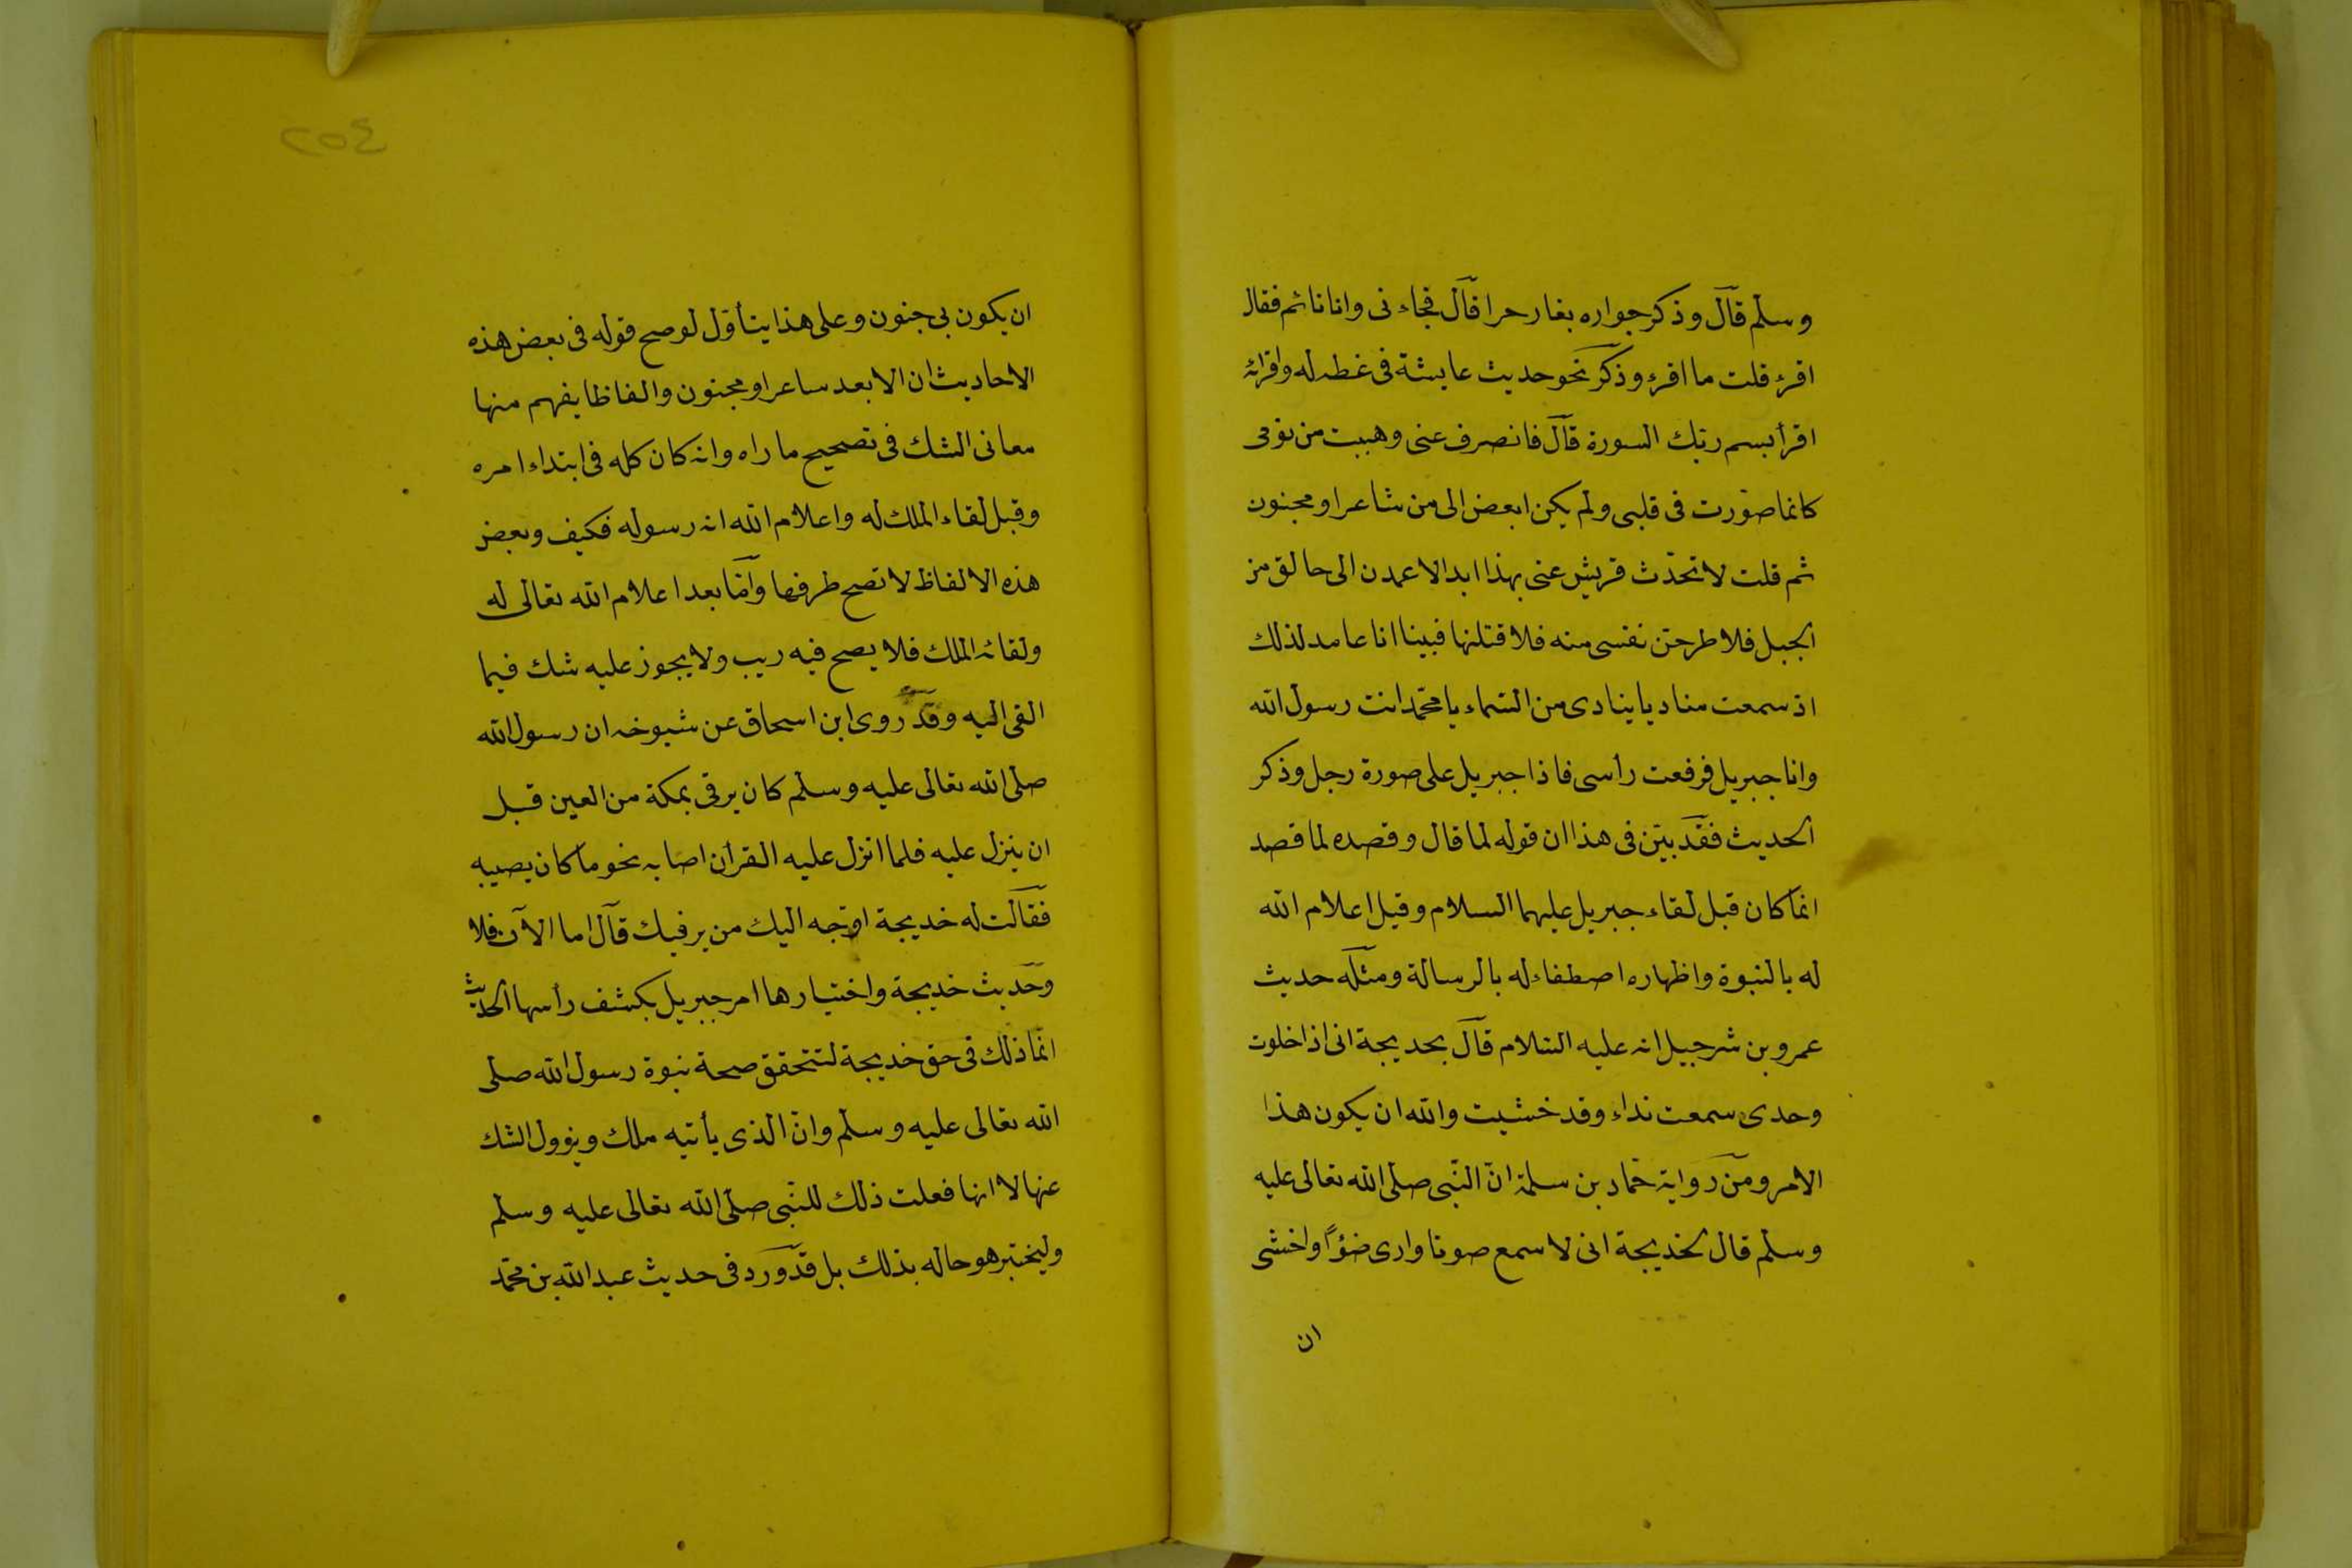 وسلم قال وذكر جواره بغار حرا قال فجاءنى وانا نائم فقال
اقرء قلت ما اقرء وذكر نحو حديث عايشة فى غطه له واقرائه
اقرأ بسم ربك السورة قال فانصرف عنى وهببت من نومى
كانما صورت فى قلبى ولم يكن ابغض الى من شاعر او مجنون
ثم قلت لا تحدث قريش عنى بهذا ابدا لاعمدن الى حالق من
الجبل فلا طرحن نفسى منه فلا قتلنها فبينا انا عامد لذلك
اذ سمعت مناديا ينادى من السماء يا محمد انت رسول الله
وانا جبريل فرفعت رأسى فاذا جبريل على صورة رجل وذكر
الحديث فقد بين فى هذا ان قوله لما قال وقصده لما قصد
انما كان قبل لقاء جبريل عليهما السلام وقبل اعلام الله
له بالنبوة واظهاره اصطفاءله بالرسالة ومثله حديث
عمرو بن شرحبيل انه عليه السلام قال بحديجة انى اذا خلوت
وحدى سمعت نداء وقد خشيت والله ان يكون هذا
الامر ومن رواية حماد بن سلمة ان النبى صلى الله تعالى عليه
وسلم قال لخديجة انى لا سمع صوتا وارى ضوًا واخشى
ان
٢٥٤
ان يكون بى جنون وعلى هذا يتأول لو صح قوله فى بعض هذه
الاحاديث ان الابعد ساعر او مجنون والفاظا يفهم منها
معانى الشك فى تصحيح ما راه وانه كان كله فى ابتداء امره
وقبل لقاء الملك له واعلام الله انه رسوله فكيف وبعض
هذه الالفاظ لا تصح طرفها واما بعد اعلام الله تعالى له
ولقائه الملك فلا يصح فيه ريب ولا يجوز عليه شك فيما
القى اليه وقد روى ابن اسحاق عن شيوخه ان رسول الله
صلى الله تعالى عليه وسلم كان يرقى بمكة من العين قبل
ان ينزل عليه فلما انزل عليه القرأن اصابه نحو ما كان يصيبه
فقالت له خديجة اوجه اليك من يرفيك قال اما الآن فلا
وحديث خديجة واختيارها امر جبريل بكشف رأسها الحديث
انما ذلك فى حق خديجة لتتحقق صحة نبوة رسول الله صلى
الله تعالى عليه وسلم وان الذى يأتيه ملك ويزول الشك
عنها لا انها فعلت ذلك للنبى صلى الله تعالى عليه وسلم
وليختبر هو حاله بذلك بل قد ورد فى حديث عبد الله بن محمد